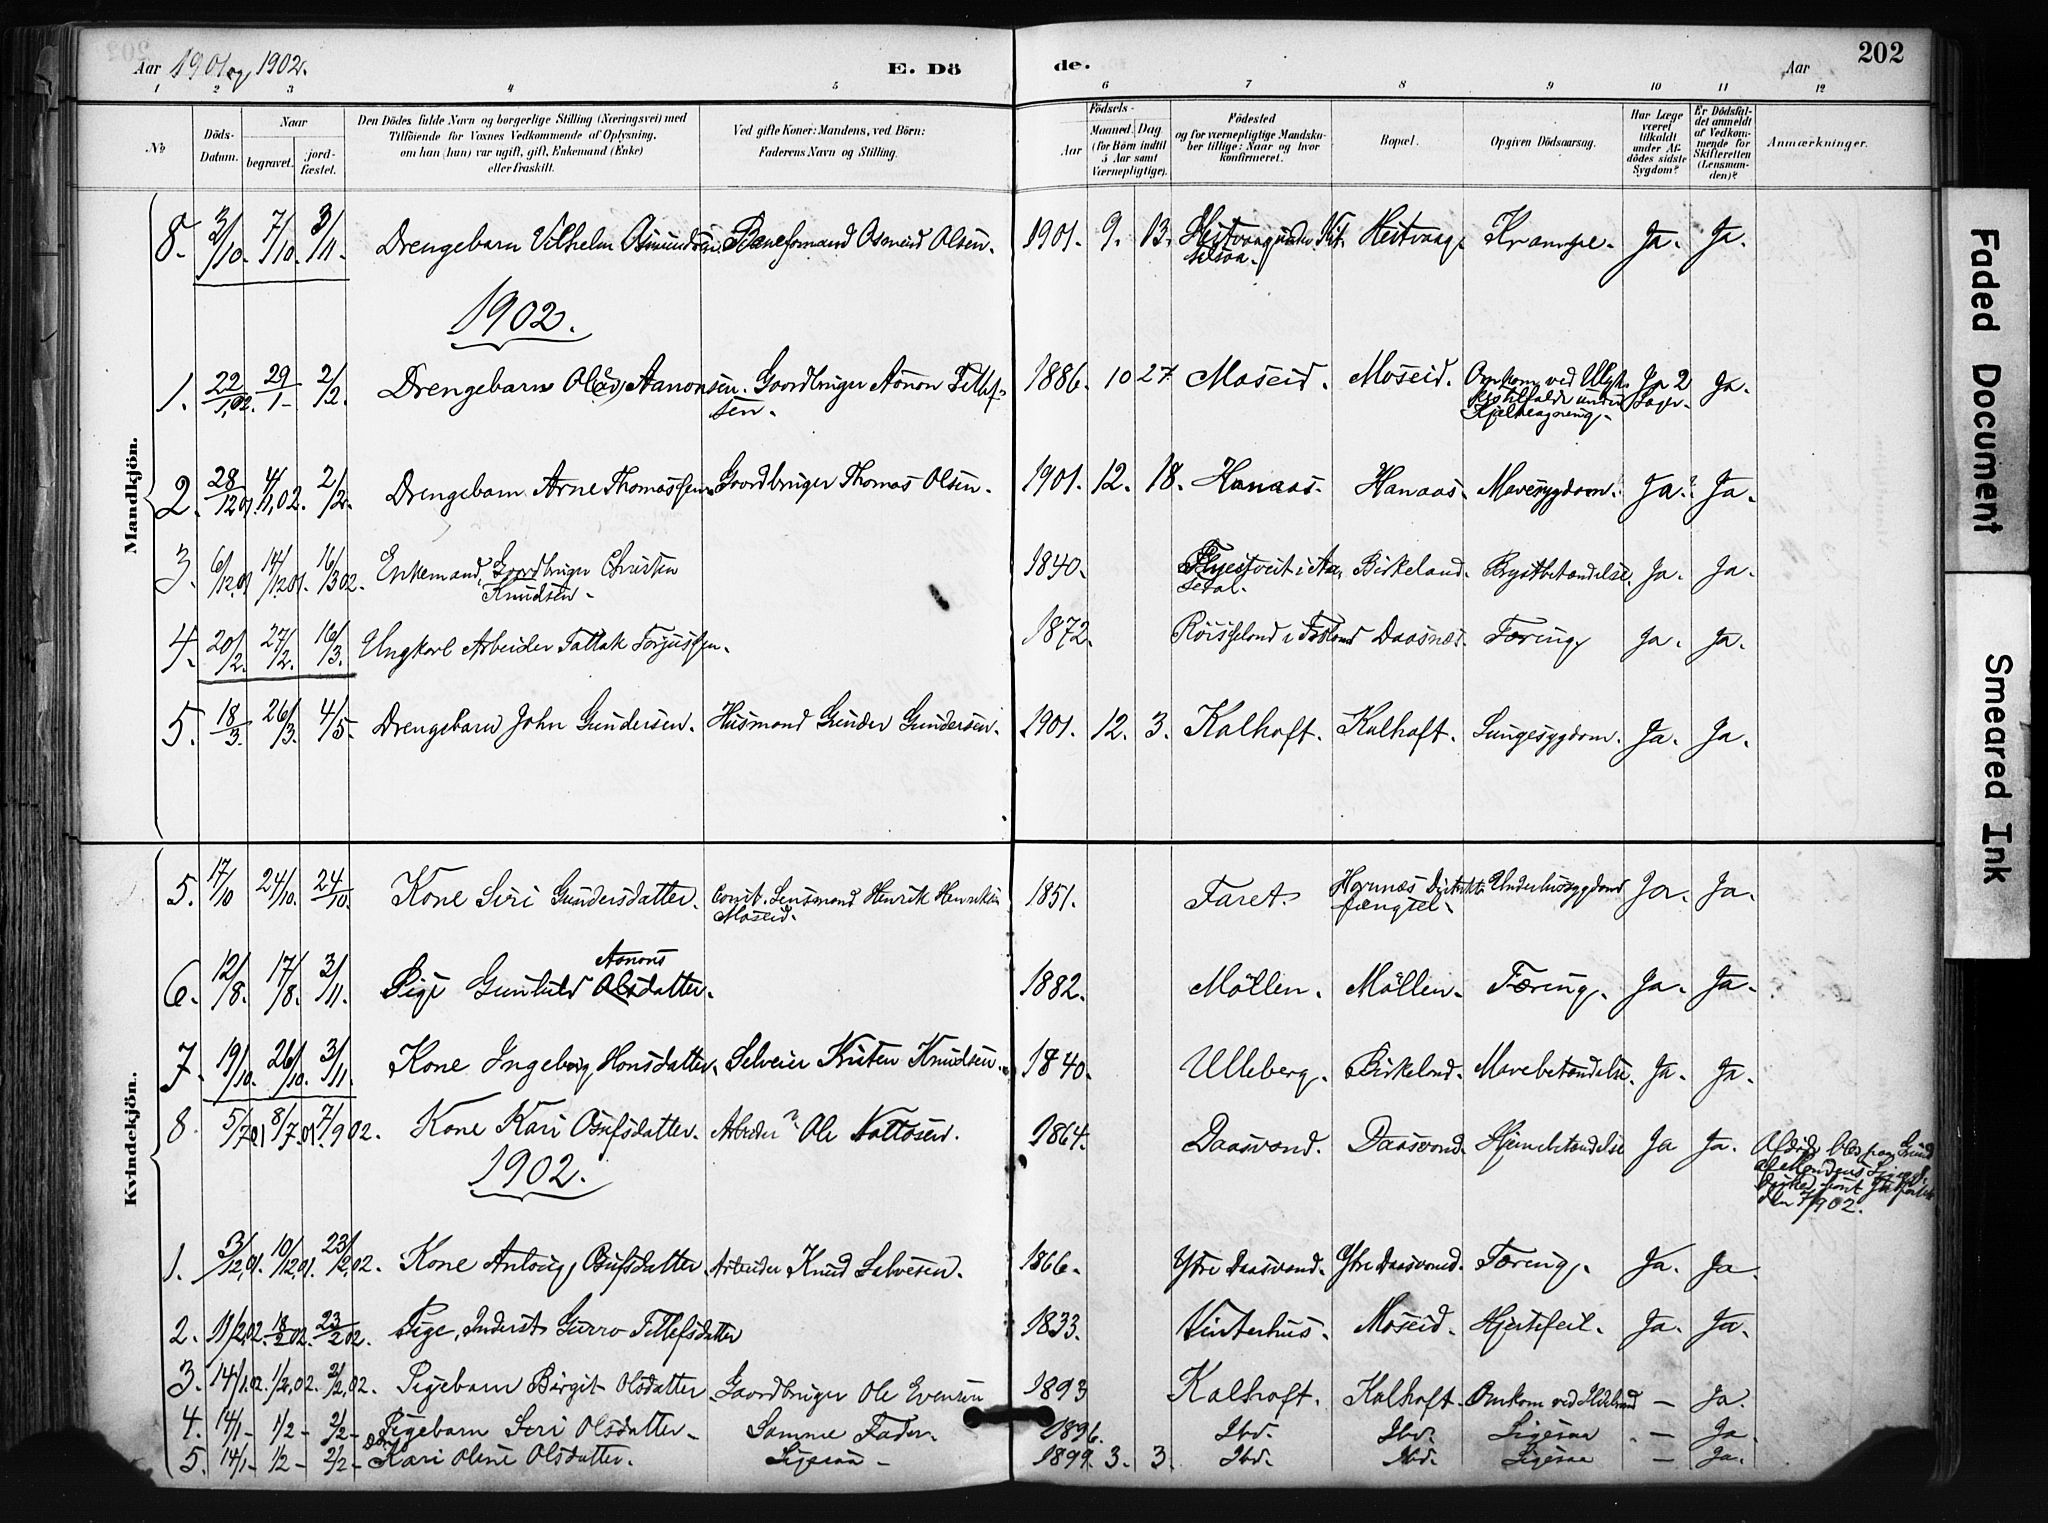 Aar 1901 og 1902.
E. Dö
de.
Aar
202
1 2 3 4 5 6 7 8 9 10 11 12
No
Döds-Datum.
Naar
begravet.
jord-fæstet.
Den Dödes fulde Navn og borgerlige Stilling (Næringsvei) med
Tilföiende for Voxnes Vedkommende af Oplysning,
om han (hun) var ugift, gift, Enkemand (Enke)
eller fraskilt.
Ved gifte Koner: Mandens, ved Börn:
Faderens Navn og Stilling.
Födsels-
Aar
Maaned Dag
(for Börn indtil
5 Aar samt
Værnepligtige).
Födested
og for værnepligtige Mandsku-
ber tillige: Naar og hvor
konfirmeret.
Bopæl.
Opgiven Dödsaarsag.
Har Læge
været
tilkaldt
under Af-
dödes sidste
Sygdom?
Er Dödsfal-
det anmeldt
af Vedkom-
mende for
Skifteretten
(Lensman-
den)?
Anmærkninger.
Mandkjön.
8. 3/10. 7/10. 3/11. Drengebarn Vilhelm Osmundsen. Osmund Olsen. 1901. 9. 13. Heitvaag. Krampe. Ja. Ja.
1902.
1. 22/1,02. 29/1- 2/2. Drengebarn Olav Aanonsen. Gaardbruger Aanon Tellef-
sen. 1886. 10 27 Moseid. Moseid. Omkom ved Ulyk-
kestilfælde under
Jo 2
Læger. Ja.
2. 28/12 01. 4/1,02. 2/2. Drengebarn Arne Thomassen. Gaardbruger Thomas Olsen. 1901. 12. 18. Hanaas. Hanaas. Mavesygdom. Ja. Ja.
3. 6/12 01 14/12 01. 16/3 02. Enkemand, Gaardbruger Christen
Knudsen. 1840. i Aa-
seral. Birkeland. Brystbetændelse. Ja. Ja.
4. 20/2. 27/2. 16/3. Ungkarl Arbeider Tallak Torjussen. 1872. Daasnes. Tæring. Ja. Ja.
5. 18/3. 26/3. 4/5. Drengebarn John Gundersen. Husmand Gunder Gundersen. 1901. 12. 3. Kalhoft. Kalhoft. Lungesygdom. Ja. Ja.
Kvindekjön.
5. 17/10 24/10. 24/10. Kone Siri Gundersdatter. Const. Lensmand Henrik Henriksen
Moseid. 1851. Faret. Hornnæs Distrikts-
fængsel. Underlivssygdom Ja. Ja.
6. 12/8. 17/8. 3/11. Pige Gunhild Aanons
datter. 1882. Möllen. Möllen. Tæring. Ja. Ja.
7. 19/10. 26/10. 3/11. Kone Ingeborg Hansdatter. Selveier Kristen Knudsen. 1840. Ulleberg. Birkeland. Mavebetændelse. Ja. Ja.
8. 5/7 01 8/7 01. 7/9 02. Kone Kari Osufsdatter. Arbeider? Ole 1864. Daasvand. Daasvand. Hjernebetændelse Ja Ja.
1902.
1. 3/12,01. 10/12,01. 23/2,02. Kone Osufsdatter. Arbeider Knud Salvesen. 1866. Ytre Daasvand. Ytre Daasvand. Tæring. Ja. Ja.
2. 11/2,02. 18/2 02. 23/2 02. Pige, Inderst Gurro Tellefsdatter 1833. Vinterhus. Moseid. Hjertefeil. Ja. Ja.
3. 14/1.02. 1/2,02. 2/2,02. Pigebarn Birgit Olsdatter. Gaardbruger Ole Evensen 1893 Kalhoft. Kalhoft. Omkom ved Ildebrand — Ja.
4. 14/1- 1/2- 2/2- Pigebarn Siri Olsdatter. Samme Fader. 1896. Ibd. Ibd. Ligesaa — Ja.
5. 14/1- 1/2- 2/2- Do Kari Oline Olsdatter. Ligesaa - 1899. 3. 3. Ibd. Ibd. Ligesaa — Ja.
Faded Document
Smeared Ink